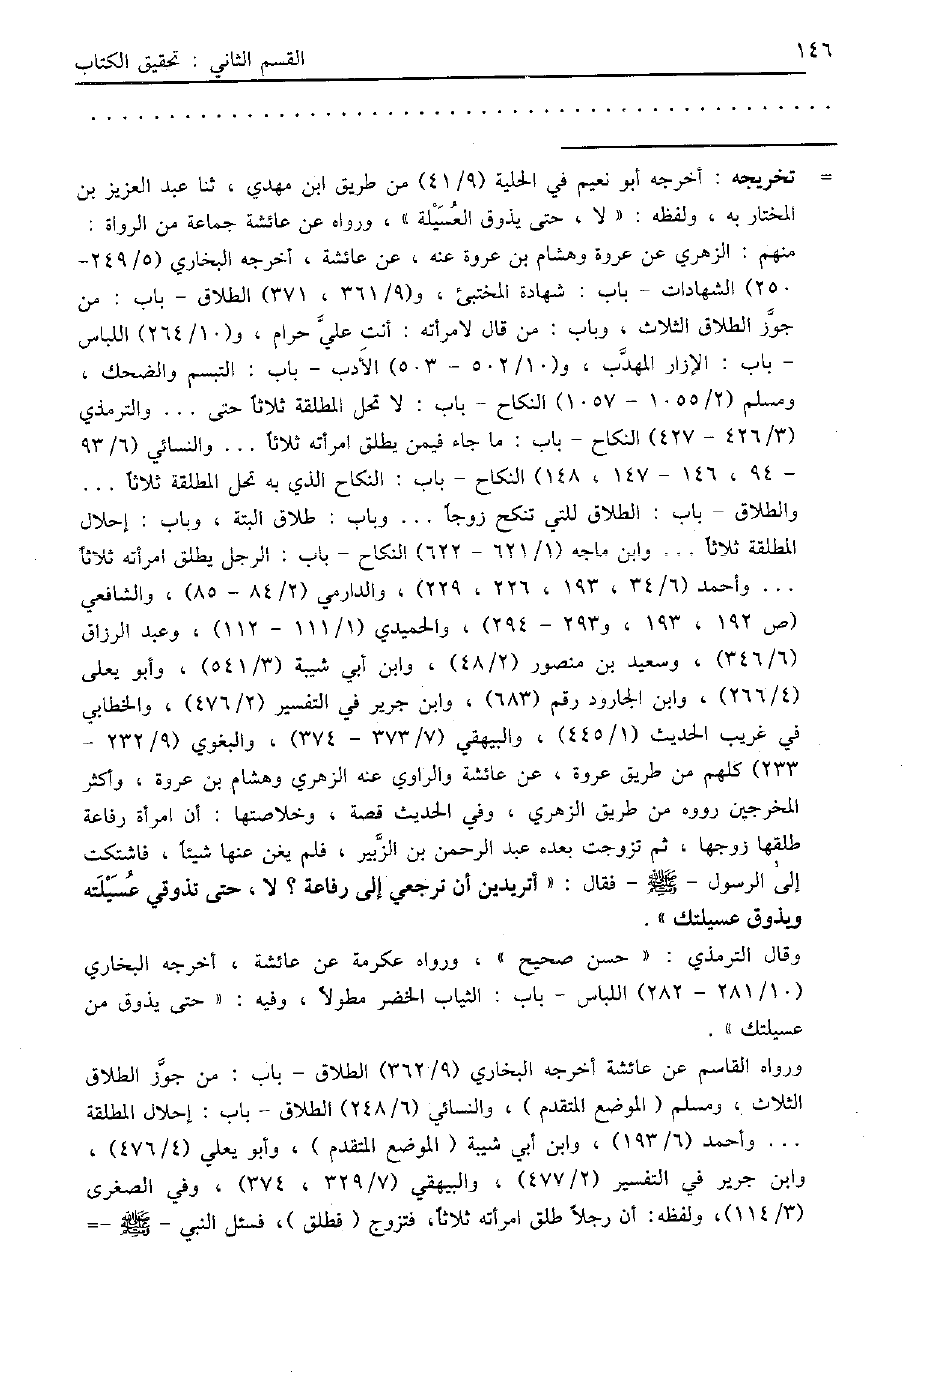 ١٤٦
القسم الثاني : تحقيق الكتاب
. . . . . . . . . . . . . . . . . . . . . . . . . . . . . . . . . . . . . . . . . . . . . . .
= تخريجه : أخرجه أبو نعيم في الحلية (٩/ ٤١) من طريق ابن مهدي ، ثنا عبد العزيز بن
المختار به ، ولفظه : « لا ، حتى يذوق العُسَيْلة » ، ورواه عن عائشة جماعة من الرواة :
منهم : الزهري عن عروة وهشام بن عروة عنه ، عن عائشة ، أخرجه البخاري (٥/ ٢٤٩-
٢٥٠) الشهادات – باب : شهادة المختبئ ، و(٩/ ٣٦١ ، ٣٧١) الطلاق – باب : من
جوَّز الطلاق الثلاث ، وباب : من قال لامرأته : أنتِ عليَّ حرام ، و(١٠/ ٢٦٤) اللباس
– باب : الإزار المهدَّب ، و(١٠/ ٥٠٢ – ٥٠٣) الأدب – باب : التبسم والضحك ،
ومسلم (٢/ ١٠٥٥ – ١٠٥٧) النكاح – باب : لا تحل المطلقة ثلاثاً حتى ... والترمذي
(٣/ ٤٢٦ – ٤٢٧) النكاح – باب : ما جاء فيمن يطلق امرأته ثلاثاً ... والنسائي (٦/ ٩٣
– ٩٤ ، ١٤٦ – ١٤٧ ، ١٤٨) النكاح – باب : النكاح الذي به تحل المطلقة ثلاثاً ...
والطلاق – باب : الطلاق للتي تنكح زوجاً ... وباب : طلاق البتة ، وباب : إحلال
المطلقة ثلاثاً ... وابن ماجه (١/ ٦٢١ – ٦٢٢) النكاح – باب : الرجل يطلق امرأته ثلاثاً
... وأحمد (٦/ ٣٤ ، ١٩٣ ، ٢٢٦ ، ٢٢٩) ، والدارمي (٢/ ٨٤ – ٨٥) ، والشافعي
(ص ١٩٢ ، ١٩٣ ، و٢٩٣ – ٢٩٤) ، والحميدي (١/ ١١١ – ١١٢) ، وعبد الرزاق
(٦/ ٣٤٦) ، وسعيد بن منصور (٢/ ٤٨) ، وابن أبي شيبة (٣/ ٥٤١) ، وأبو يعلى
(٤/ ٢٦٦) ، وابن الجارود رقم (٦٨٣) ، وابن جرير في التفسير (٢/ ٤٧٦) ، والخطابي
في غريب الحديث (١/ ٤٤٥) ، والبيهقي (٧/ ٣٧٣ – ٣٧٤) ، والبغوي (٩/ ٢٣٢ –
٢٣٣) كلهم من طريق عروة ، عن عائشة والراوي عنه الزهري وهشام بن عروة ، وأكثر
المخرجين رووه من طريق الزهري ، وفي الحديث قصة ، وخلاصتها : أن امرأة رفاعة
طلقها زوجها ، ثم تزوجت بعده عبد الرحمن بن الزَّبير ، فلم يغن عنها شيئاً ، فاشتكت
إلى الرسول – ﷺ – فقال : « أتريدين أن ترجعي إلى رفاعة ؟ لا ، حتى تذوقي عُسَيْلَته
ويذوق عسيلتك » .
وقال الترمذي : « حسن صحيح » ، ورواه عكرمة عن عائشة ، أخرجه البخاري
(١٠/ ٢٨١ – ٢٨٢) اللباس – باب : الثياب الخضر مطولاً ، وفيه : « حتى يذوق من
عسيلتك » .
ورواه القاسم عن عائشة أخرجه البخاري (٩/ ٣٦٢) الطلاق – باب : من جوَّز الطلاق
الثلاث ، ومسلم ( الموضع المتقدم ) ، والنسائي (٦/ ٢٤٨) الطلاق – باب : إحلال المطلقة
... وأحمد (٦/ ١٩٣) ، وابن أبي شيبة ( الموضع المتقدم ) ، وأبو يعلي (٤/ ٤٧٦) ،
وابن جرير في التفسير (٢/ ٤٧٧) ، والبيهقي (٧/ ٣٢٩ ، ٣٧٤) ، وفي الصغرى
(٣/ ١١٤)، ولفظه: أن رجلاً طلق امرأته ثلاثاً، فتزوج ( فطلق )، فسئل النبي – ﷺ –=